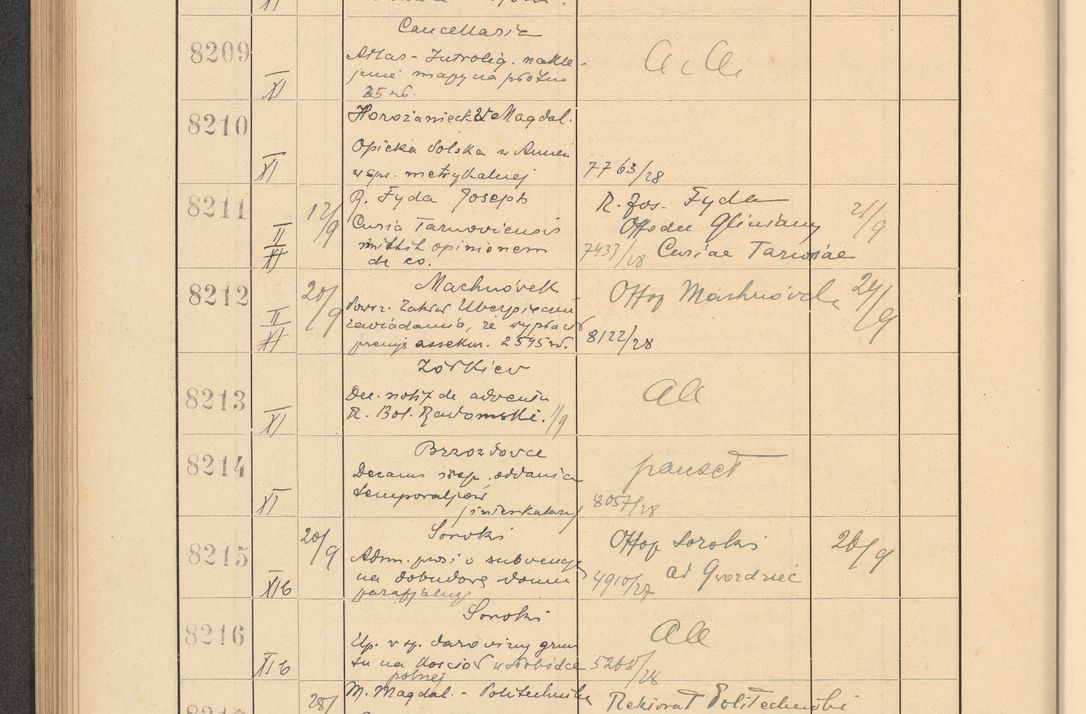 8209
XI
Cancellaria
Atlas - Introlig. nakle-
jenie mapy na płótno
25 zł.
a. a.
8210
XI
Horożaniecki Magdal.
Opieka Polska
w spr. metrykalnej
7763/28
8211
II
XI
12/9
R. Fyda Joseph
Curia Tarnoviensis
mittit opinionem
de eo.
R. Jos. Fyda
Offodec Gliniany
7433/28 Curiae Tarnov
21/9
8212
II
XI
20/9
Machnówek
Powsz. Zakład Ubezpieczeń
zawiadamia, że wypłacił
premję assekur. 2595 zł.
Offop Machnówek
8122/28
24/9
8213
XI
Żółkiew
Dec. notif. de adventu
R. Bol. Radomski. 1/9
Aa
8214
XI
Brzozdowce
Decanus wsp. oddania
temporaljów
8057/28
8215
XIb
20/9
Soroki
Adm. prosi o subwencję
na dobudowę domu
parafjalnego
Offop Soroki
4910/27 ad Gwozdziec
20/9
8216
XIb
Soroki
Up. w sp. darowizny grun
tu na kościół w Słobódce
polnej
Aa
5268/28
28/
M. Magdal. - Politechnika
Rektorat Politechniki